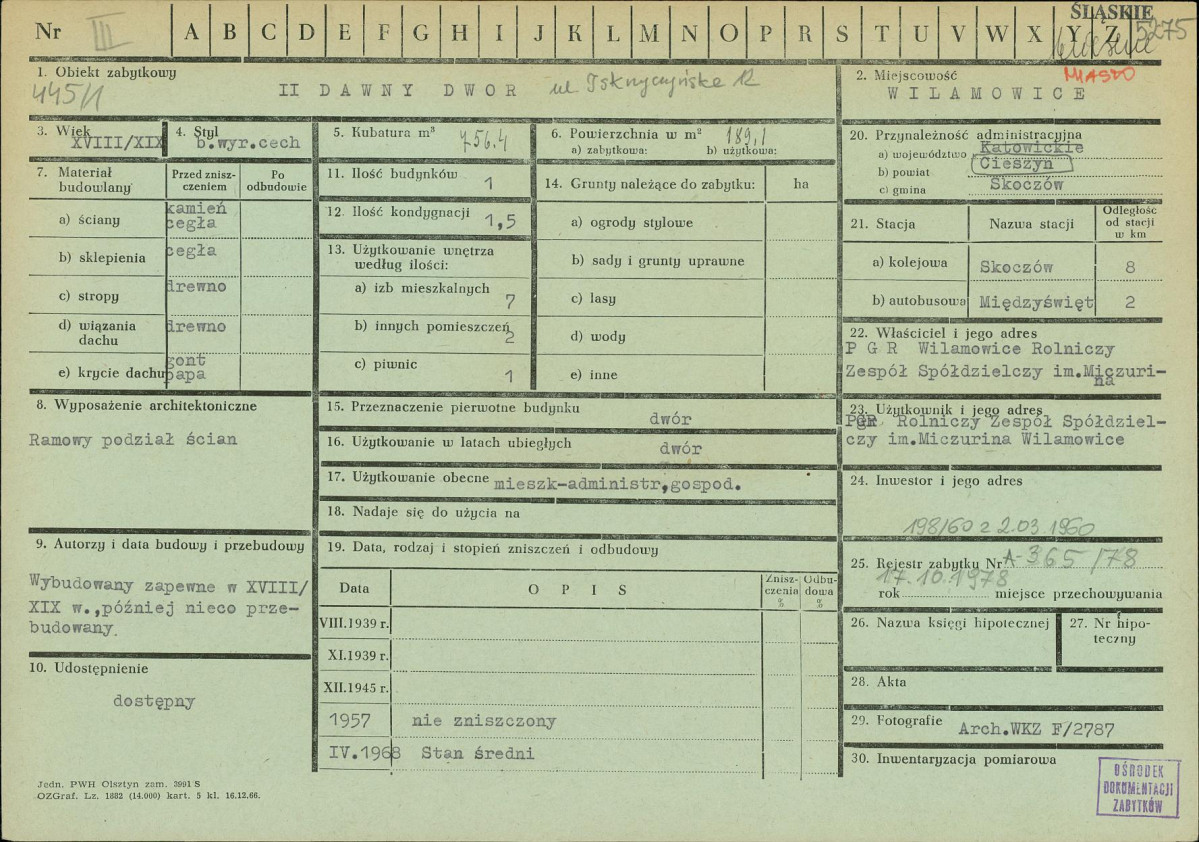 Nr III A B C D E F G H I J K L M N O P R S T U V W X Y Z
ŚLĄSKIE
5275
1. Obiekt zabytkowy
445/1
II DAWNY DWOR ul. 12
2. Miejscowość
MIASTO
WILAMOWICE
3. Wiek
XVIII/XIX
4. Styl
b.wyr.cech
5. Kubatura m³ 756.4
6. Powierzchnia w m² 189,1
a) zabytkowa: b) użytkowa:
7. Materiał budowlany
Przed znisz-
czeniem
Po
odbudowie
a) ściany
kamień
cegła
b) sklepienia
cegła
c) stropy
drewno
d) wiązania
dachu
drewno
e) krycie dachu
gont
papa
8. Wyposażenie architektoniczne
Ramowy podział ścian
9. Autorzy i data budowy i przebudowy
Wybudowany zapewne w XVIII/
XIX w.,później nieco prze-
budowany.
10. Udostępnienie
dostępny
11. Ilość budynków 1
12. Ilość kondygnacji 1,5
13. Użytkowanie wnętrza
według ilości:
a) izb mieszkalnych
7
b) innych pomieszczeń
2
c) piwnic
1
14. Grunty należące do zabytku: ha
a) ogrody stylowe
b) sady i grunty uprawne
c) lasy
d) wody
e) inne
15. Przeznaczenie pierwotne budynku
dwór
16. Użytkowanie w latach ubiegłych
dwór
17. Użytkowanie obecne mieszk-administr,gospod.
18. Nadaje się do użycia na
19. Data, rodzaj i stopień zniszczeń i odbudowy
Data
O P I S
Znisz-
czenia
%
Odbu-
dowa
%
VIII.1939 r.
XI.1939 r.
XII.1945 r.
1957 nie zniszczony
IV.1968 Stan średni
20. Przynależność administracyjna
a) województwo Katowickie
b) powiat Cieszyn
c) gmina Skoczów
21. Stacja
Nazwa stacji
Odległość
od stacji
w km
a) kolejowa Skoczów 8
b) autobusowa Międzyświęt 2
22. Właściciel i jego adres
P G R Wilamowice Rolniczy
Zespół Spółdzielczy im.Miczuri-
na
23. Użytkownik i jego adres
PGR Rolniczy Zespół Spółdziel-
czy im.Miczurina Wilamowice
24. Inwestor i jego adres
198/60 z 2.03 1960
25. Rejestr zabytku Nr A-365/78
17.10.1978
rok miejsce przechowywania
26. Nazwa księgi hipotecznej
27. Nr hipo-
teczny
28. Akta
29. Fotografie Arch.WKZ F/2787
30. Inwentaryzacja pomiarowa
OŚRODEK
DOKUMENTACJI
ZABYTKÓW
Jedn. PWH Olsztyn zam. 3991 S
OZGraf. Lz. 1882 (14.000) kart. 5 kl. 16.12.66.